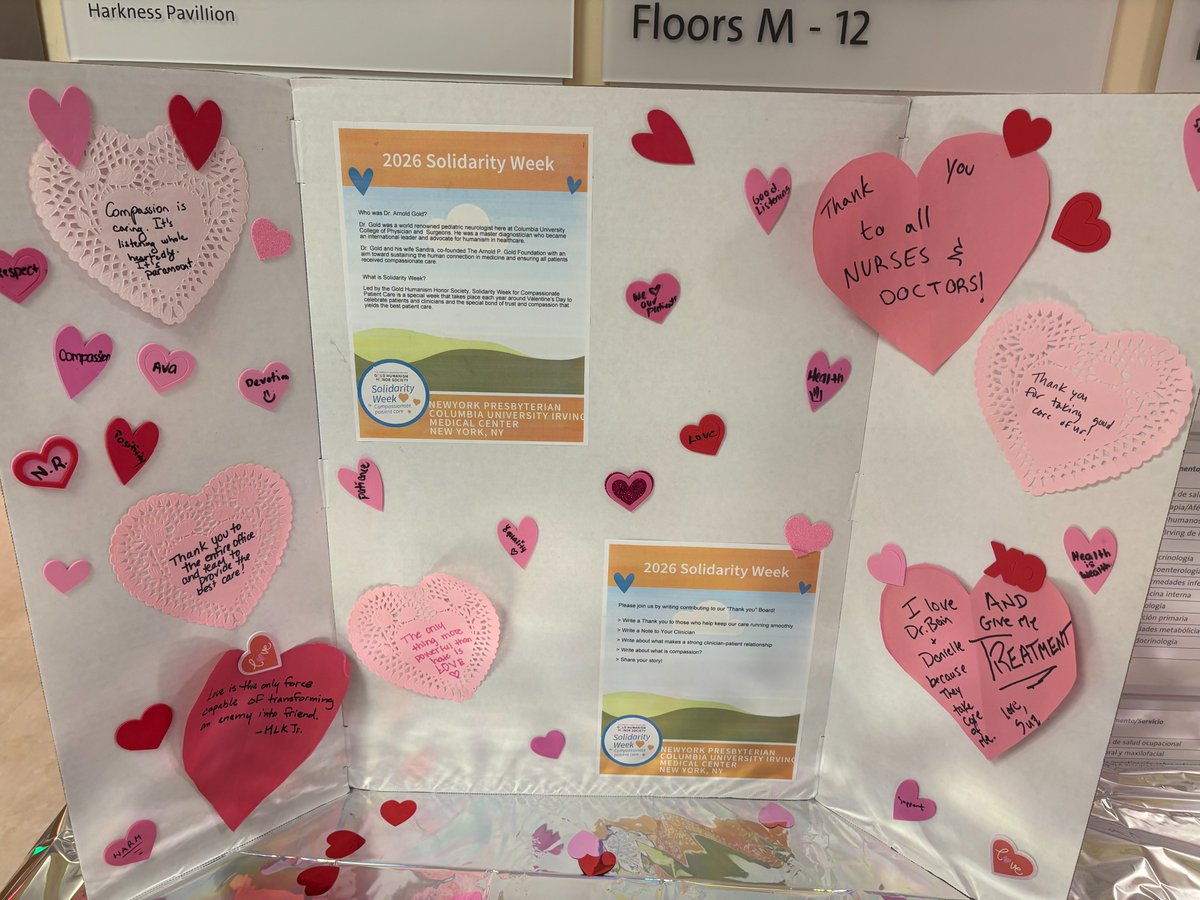 Harkness Pavillion
Floors M - 12
Compassion is
caring It's
listening whole
heartedly.
It's
paramount
Respect
Compassion
Ava
Devotion
N.R.
Positivity
Thank you to
the entire office
and team to
provide the
best care!
love
Love is the only force
capable of transforming
an enemy into friend.
-MLK Jr.
WARM
2026 Solidarity Week
Who was Dr. Arnold Gold?
Dr. Gold was a world renowned pediatric neurologist here at Columbia University
College of Physician and Surgeons. He was a master diagnostician who became
an international leader and advocate for humanism in healthcare.
Dr. Gold and his wife Sandra, co-founded The Arnold P. Gold Foundation with an
aim toward sustaining the human connection in medicine and ensuring all patients
received compassionate care.
What is Solidarity Week?
Led by the Gold Humanism Honor Society, Solidarity Week for Compassionate
Patient Care is a special week that takes place each year around Valentine's Day to
celebrate patients and clinicians and the special bond of trust and compassion that
yields the best patient care.
GOLD HUMANISM
HONOR SOCIETY
Solidarity
Week
for Compassionate
patient care
NEWYORK PRESBYTERIAN
COLUMBIA UNIVERSITY IRVING
MEDICAL CENTER
NEW YORK, NY
Good
Listening
We
our
patients
Health
Love
patience
Equality
The only
thing more
powerful than
hate is
LOVE
2026 Solidarity Week
Please join us by writing contributing to our "Thank you" Board!
> Write a Thank you to those who help keep our care running smoothly
> Write a Note to Your Clinician
> Write about what makes a strong clinician-patient relationship
> Write about what is compassion?
> Share your story!
GOLD HUMANISM
HONOR SOCIETY
Solidarity
Week
for Compassionate
patient care
NEWYORK PRESBYTERIAN
COLUMBIA UNIVERSITY IRVING
MEDICAL CENTER
NEW YORK, NY
Thank You
to all
NURSES &
DOCTORS!
Thank you
for taking good
care of us!
XO
Health
is
wealth
I love
Dr. Bain
+
Danielle
because
They
take
care of
me.
AND
GIVE ME
TREATMENT
love,
Suz
Support
love